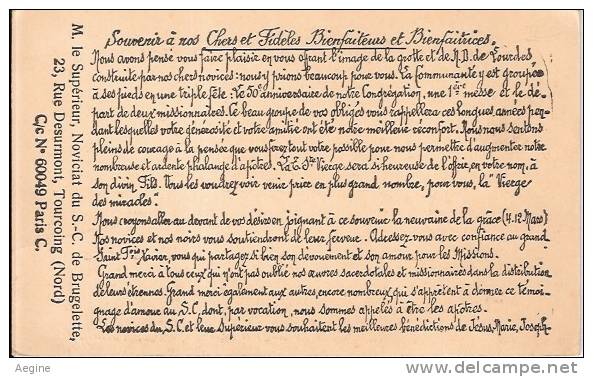 Souvenir à nos Chers et Fidèles Bienfaiteurs et Bienfaitrices.
Nous avons pensé vous faire plaisir en vous offrant l'image de la grotte et de N.D. de Lourdes
construite par nos chers novices: nous y prions beaucoup pour vous. La Communauté y est groupée
à ses pieds en une triple fête: Le 50e anniversaire de notre Congrégation, une 1ère messe et le dé-
part de deux missionnaires. Ce beau groupe de vos obligés vous rappellera ces longues années pen-
dant lesquelles votre générosité et votre amitié ont été notre meilleur réconfort. Nous nous sentons
pleins de courage à la pensée que vous ferez tout votre possible pour nous permettre d'augmenter notre
nombreuse et ardente phalange d'apôtres. La Ste Vierge sera si heureuse de l'offrir, en votre nom, à
son divin Fils. Tous les voudrez voir venir prier en plus grand nombre, pour vous, la "Vierge
des miracles".
Nous croyons aller au devant de vos désirs en joignant à ce souvenir la neuvaine de la grâce (4-12 Mars)
Nos novices et nos noirs vous soutiendront de leur ferveur. Adressez-vous avec confiance au grand
Saint Fcois Xavier, vous qui partagez si bien son dévouement et son amour pour les Missions.
Grand merci à tous ceux qui n'ont pas oublié nos œuvres sacerdotales et missionnaires dans la distribution
de leurs étrennes. Grand merci également aux autres, encore nombreux, qui s'apprêtent à donner ce témoi-
gnage d'amour au S.C. dont, par vocation, nous sommes appelés à être les apôtres.
Les novices du S.C. et leur Supérieur vous souhaitent les meilleures bénédictions de Jésus-Marie, Joseph.
M. le Supérieur, Noviciat du S.-C. de Brugelette,
23, Rue Desurmont, Tourcoing (Nord)
C/c N° 60049 Paris C.
Aegine
delcampe.net